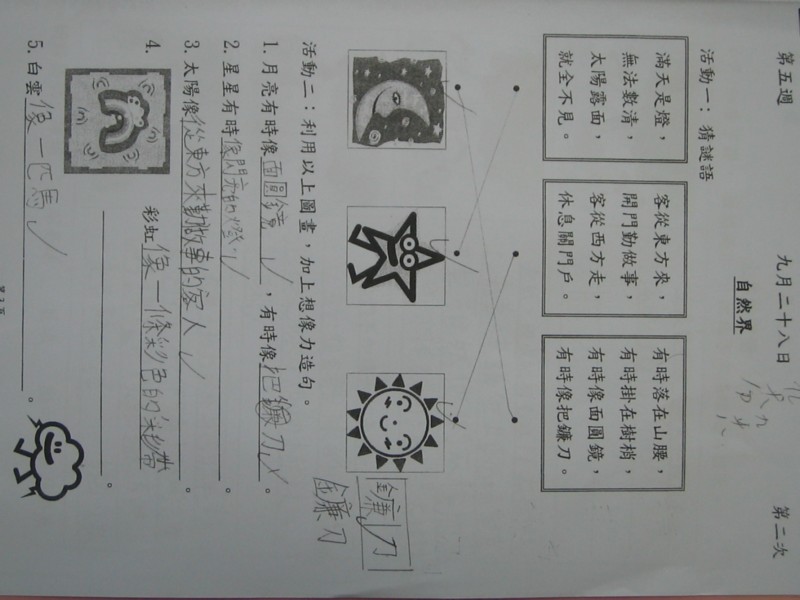 第五週 九月二十八日 第二次
自然界
活動一：猜謎語
滿天是燈，
無法數清，
太陽露面，
就全不見。
客從東方來，
開門勤做事，
客從西方走，
休息關門戶。
有時落在山腰，
有時掛在樹梢，
有時像面圓鏡，
有時像把鐮刀。
活動二：利用以上圖畫，加上想像力造句。
1. 月亮有時像面圓鏡，有時像把鐮刀。
2. 星星有時像閃亮的燈。
3. 太陽像從東方來勤做事的客人。
4. 彩虹像一條彩色的彩帶。
5. 白雲像一匹馬。
鐮刀
鐮刀